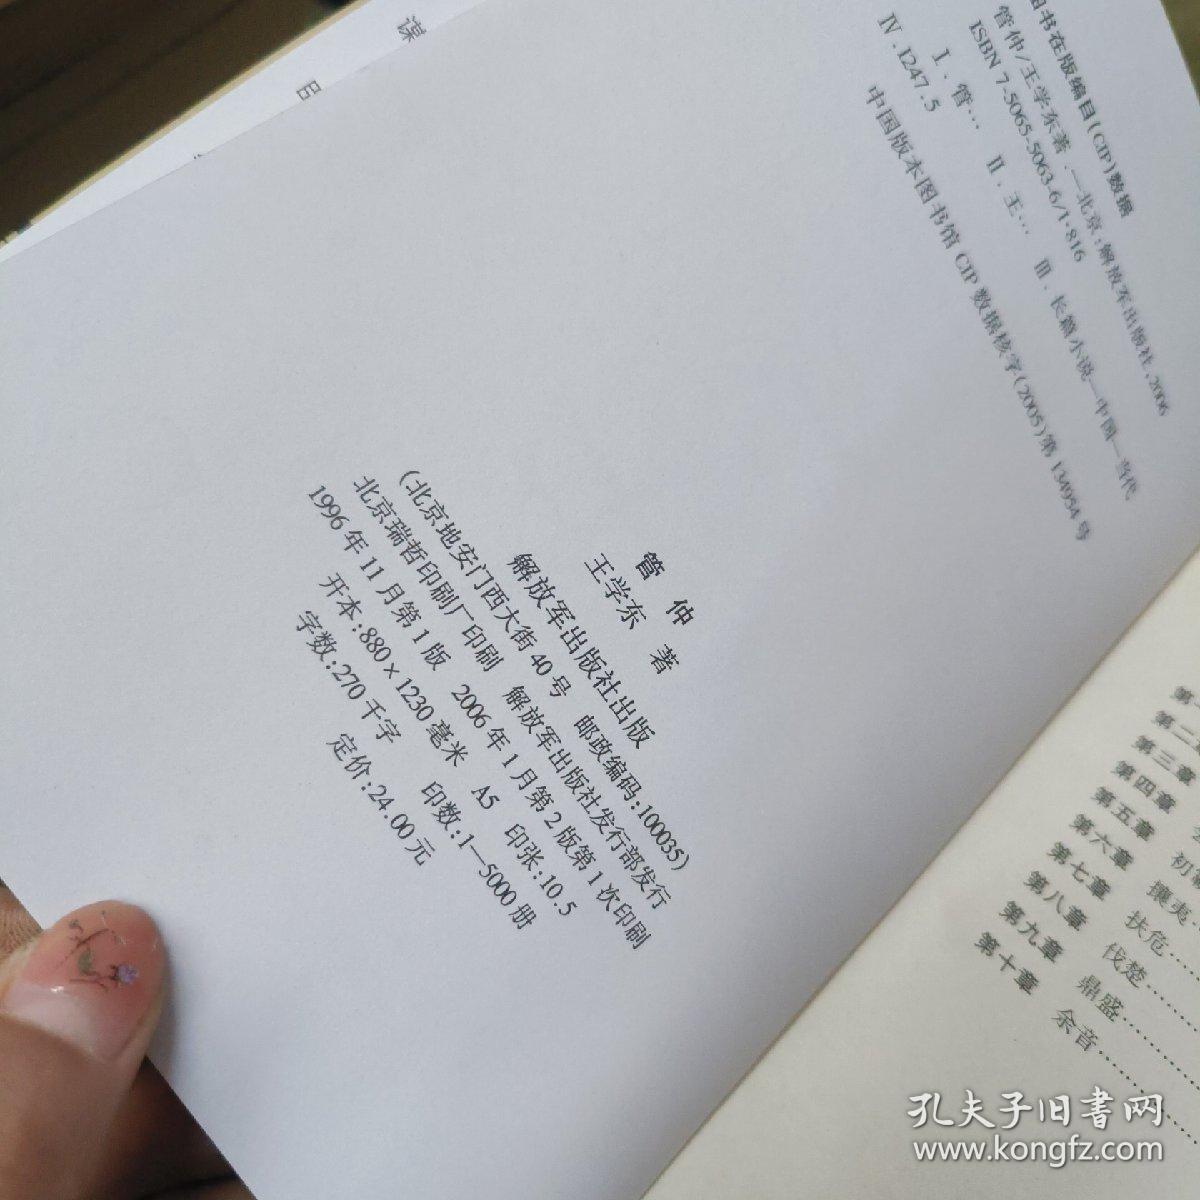 图书在版编目(CIP)数据
管仲/王学东著.—北京:解放军出版社,2006
ISBN 7-5065-5063-6/I·816
Ⅰ.管… Ⅱ.王… Ⅲ.长篇小说—中国—当代
Ⅳ.I247.5
中国版本图书馆 CIP 数据核字(2005)第 134954 号
管 仲
王学东 著
解放军出版社出版
(北京地安门西大街40号 邮政编码:100035)
北京瑞哲印刷厂印刷 解放军出版社发行部发行
1996年11月第1版 2006年1月第2版第1次印刷
开本:880×1230毫米 A5 印张:10.5
字数:270千字 印数:1—5000册
定价:24.00元
谋
第二
第三章
第四章
第五章 初
第六章 攘夷……
第七章 扶危……
第八章 伐楚……
第九章 鼎盛……
第十章 余音……
孔夫子旧书网
www.kongfz.com